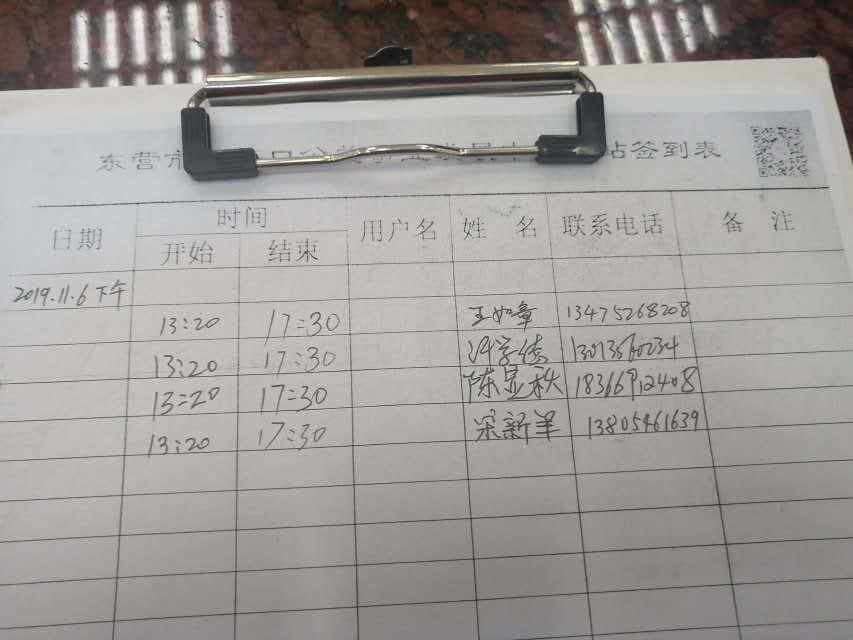 东营市 站签到表
日期 时间 用户名 姓 名 联系电话 备 注
开始 结束
2019.11.6下午
13:20 17:30 王如章 13475268208
13:20 17:30 13013560234
13:20 17:30 陈显秋 18366912408
13:20 17:30 宋新羊 13805461639